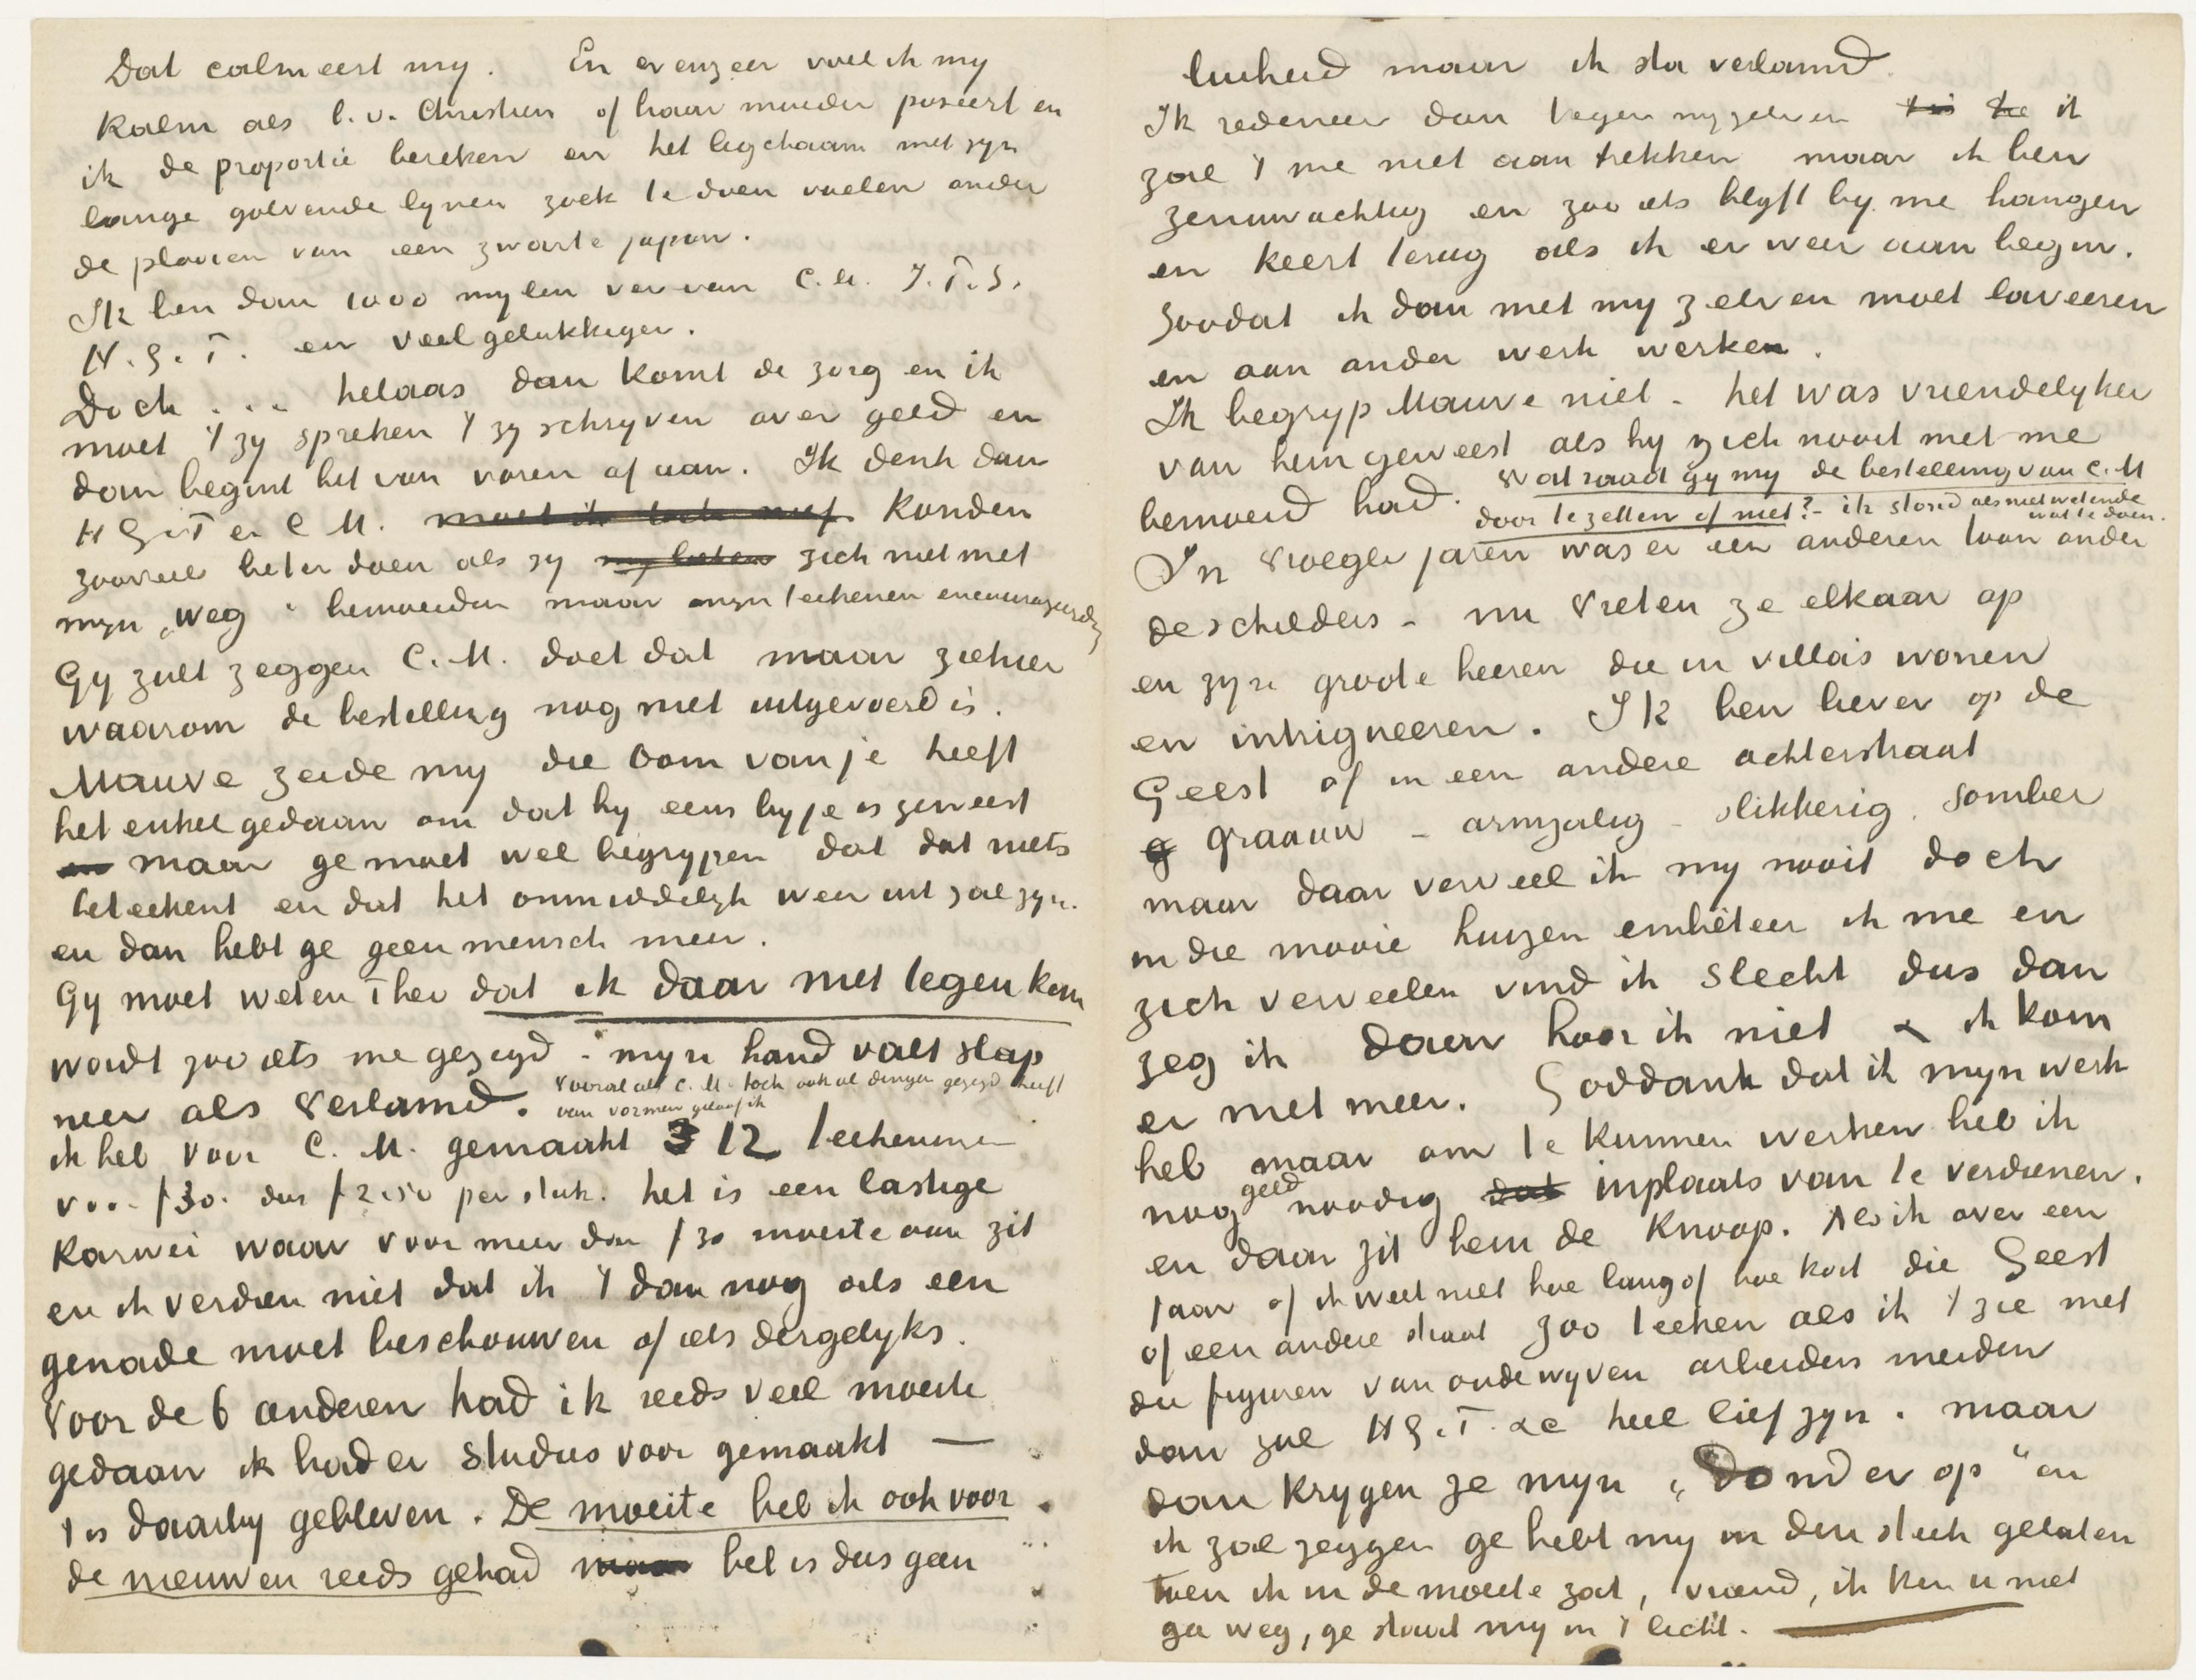 Dat calmeert my. En evenzeer voel ik my
kalm als b.v. Christien of haar moeder poseert en
ik de proportie bereken en het ligchaam met zyn
lange golvende lynen zoek te doen voelen onder
de plooien van een zwarte japon.
Ik ben dan 1000 mylen ver van C.M. J.T.S.
H.G.T. en veel gelukkiger.
Doch ... helaas dan komt de zorg en ik
moet 't zy spreken 't zy schryven over geld en
dan begint het van voren af aan. Ik denk dan
H G T en C M. moet ik toch niet konden
zooveel beter doen als zy my laten zich niet met
myn „weg“ bemoeiden maar myn teekenen encourageerden
Gy zult zeggen C.M. doet dat maar ziehier
waarom de bestelling nog niet uitgevoerd is.
Mauve zeide my die oom van je heeft
het enkel gedaan om dat hy eens by je is geweest
en maar ge moet wel begrypen dat dat niets
beteekent en dat het onmiddelyk weer uit zal zyn.
en dan hebt ge geen mensch meer.
Gy moet weten Theo dat ik daar niet tegen kan
wordt zoo iets me gezegd - myn hand valt slap
neer als verlamd. Vooral als C.M. toch ook al dingen gezegd heeft
van vormen geloof ik
ik heb voor C.M. gemaakt 12 teekeningen
voor f 30. dus f 2.50 per stuk. het is een lastige
karwei waar voor meer dan f 30 moeite aan zit
en ik verdien niet dat ik 't dan nog als een
genade moet beschouwen of iets dergelyks.
Voor de 6 anderen had ik reeds veel moeite
gedaan ik had er studies voor gemaakt —
't is daarby gebleven. De moeite heb ik ook voor
de nieuwen reeds gehad maar het is dus geen
luiheid maar ik sta verlamd.
Ik redeneer dan tegen myzelven ik
zal 't me niet aan trekken maar ik ben
zenuwachtig en zoo iets blyft by me hangen
en keert terug als ik er weer aan begin.
Zoodat ik dan met my zelven moet laveeren
en aan ander werk werken.
Ik begryp Mauve niet - het was vriendelyker
van hem geweest als hy zich nooit met me
bemoeid had. Wat raad gy my de bestelling van C.M
door te zetten of niet? - ik stond als niet wetende
wat te doen.
In vroeger jaren was er een anderen toon onder
de schilders - nu vreten ze elkaar op
en zyn groote heeren die in villa's wonen
en intrigueeren. Ik ben liever op de
Geest of in een andere achterstraat
g graauw - armzalig - slikkerig, somber
maar daar verveel ik my nooit doch
in die mooie huizen embêteer ik me en
zich verveelen vind ik slecht dus dan
zeg ik daar hoor ik niet & ik kom
er niet meer. Goddank dat ik myn werk
heb maar om te kunnen werken heb ik
nog geld noodig dat inplaats van te verdienen.
en daar zit hem de knoop. Als ik over een
jaar of ik weet niet hoe lang of hoe kort die Geest
of een andere straat zoo teeken als ik 't zie met
die figuren van oude wyven arbeiders meiden
dan zal H G.T. &c heel lief zyn. maar
dan krygen ze myn „donder op“ en
ik zal zeggen ge hebt my in den steek gelaten
toen ik in de moeite zat, vriend, ik ken u niet
ga weg, ge staat my in 't licht. —